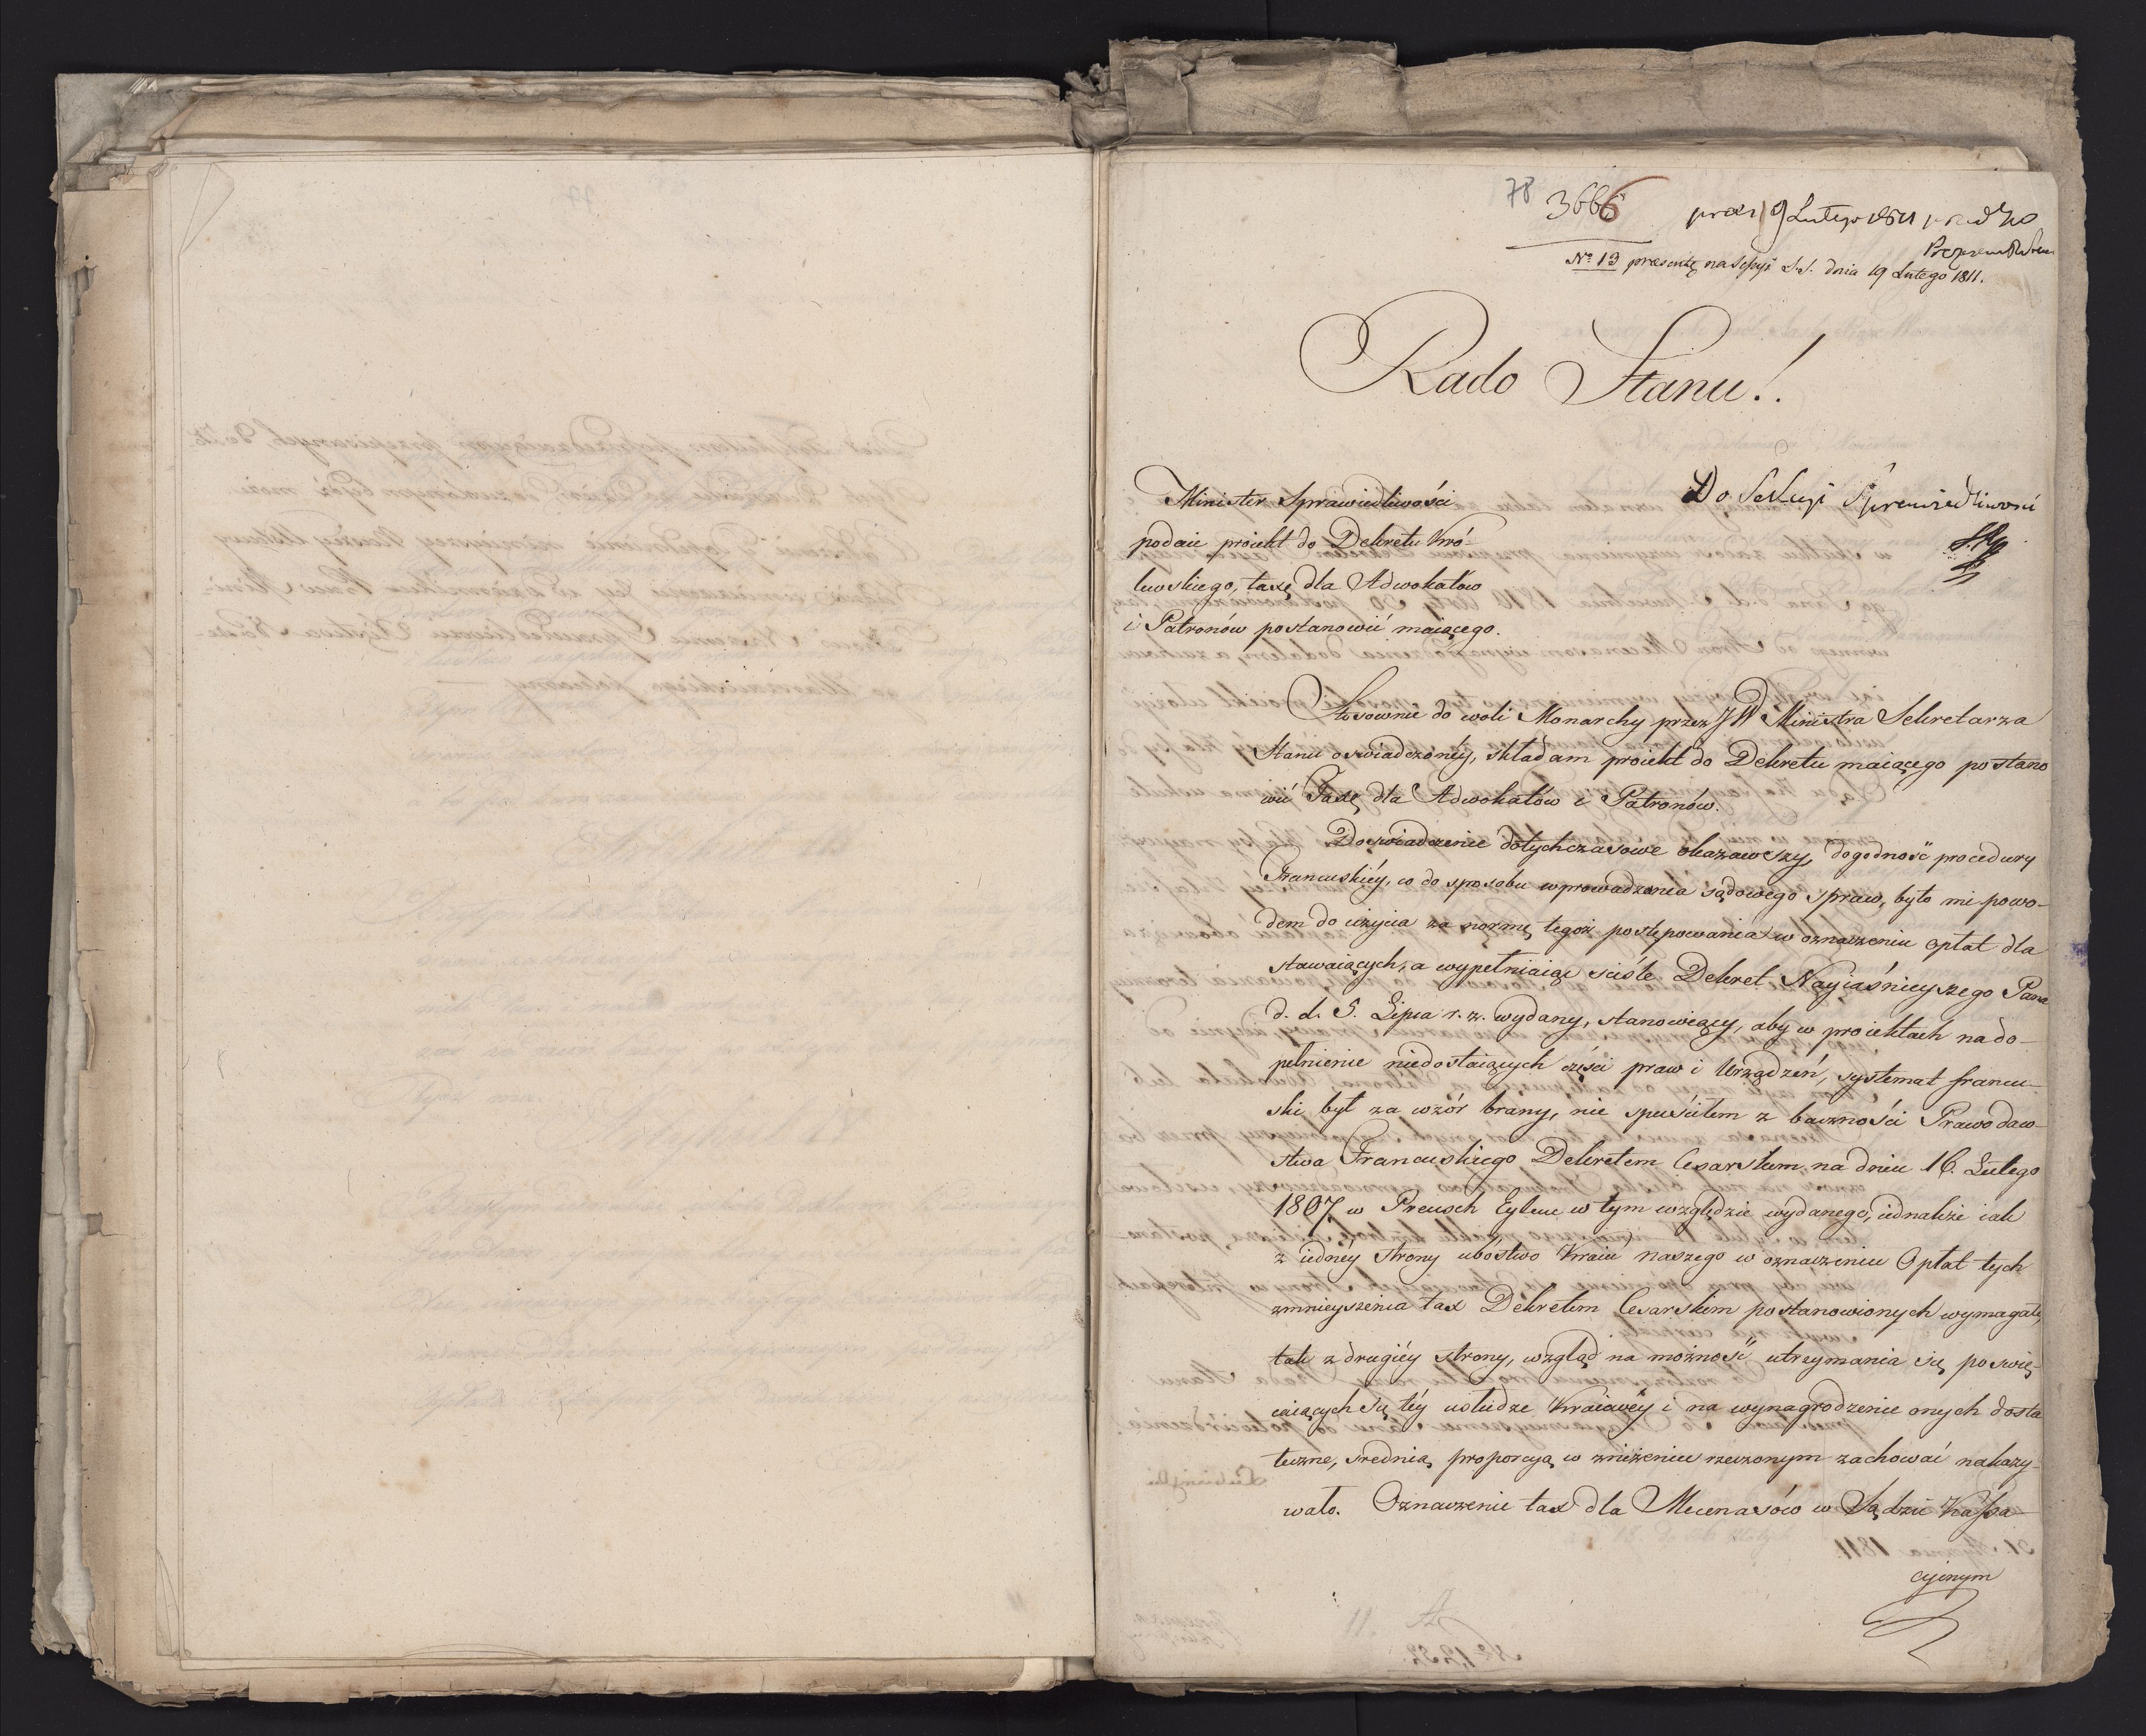 78 3666
N° 13 na Sessyi S.S. dnia 19 Lutego 1811.
Rado Stanu!
Minister Sprawiedliwości
podaie proiekt do Dekretu Kró-
lewskiego, taxę dla Adwokatów
i Patronów postanowić maiącego.
Do Sekcyi Sprawiedliwości
Stosownie do woli Monarchy przez JW Ministra Sekretarza
Stanu oswiadczonéy, składam proiekt do Dekretu maiącego postano
wić Taxę dla Adwokatów i Patronów.
Doswiadczenie dotychczasowe okazawszy, dogodność procedury
Francuskiéy, co do sposobu wprowadzenia sądowego spraw, było mi powo-
dem do użycia za normę tegoż postępowania w oznaczeniu opłat dla
stawaiących, a wypełniaiąc sciśle Dekret Nayiaśnieyszego Pana
d. d. 5. Lipca r. z. wydany, stanowiący, aby w proiektach na do-
pełnienie niedostaiących części praw i Urządzeń, systemat francu-
ski był za wzór brany, nie spuściłem z baczności Prawodaw-
stwa Francuskiego Dekretem Cesarskim na dniu 16. Lutego
1807 w Preusch Eylau w tym względzie wydanego, iednakże iak
z iednéy strony ubóstwo Kraiu naszego w oznaczeniu Opłat tych
zmnieyszenia tax Dekretem Cesarskim postanowionych wymagało,
tak z drugiéy strony, wzgląd na możność utrzymania się poswię-
caiących się téy usłudze Kraiowéy i na wynagrodzenie onych dosta
teczne, srednią proporcyą w zniżeniu rzeczonym zachować nakazy-
wało. Oznaczenie tax dla Mecenasów w Sądzie Kassa-
cyinym